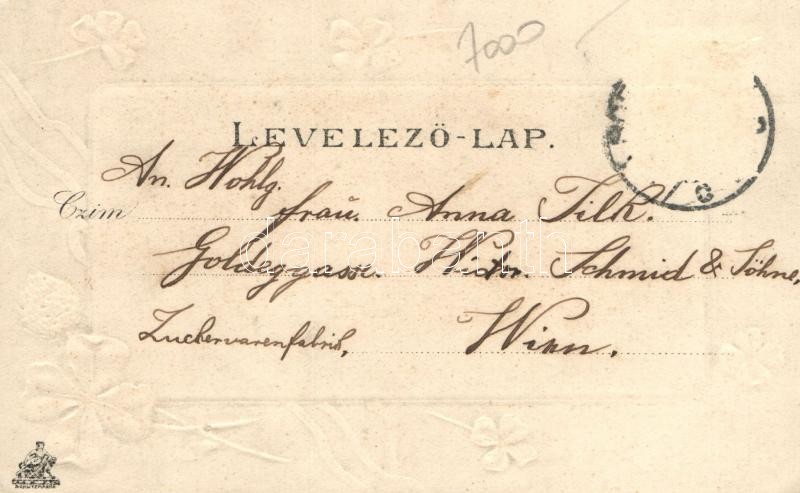 7000
LEVELEZŐ-LAP.
An. Wohlg.
Czim Frau. Anna Tilk.
Goldeggasse. Victor. Schmid & Söhne,
Zuckerwarenfabrik, Wien.
darabanth